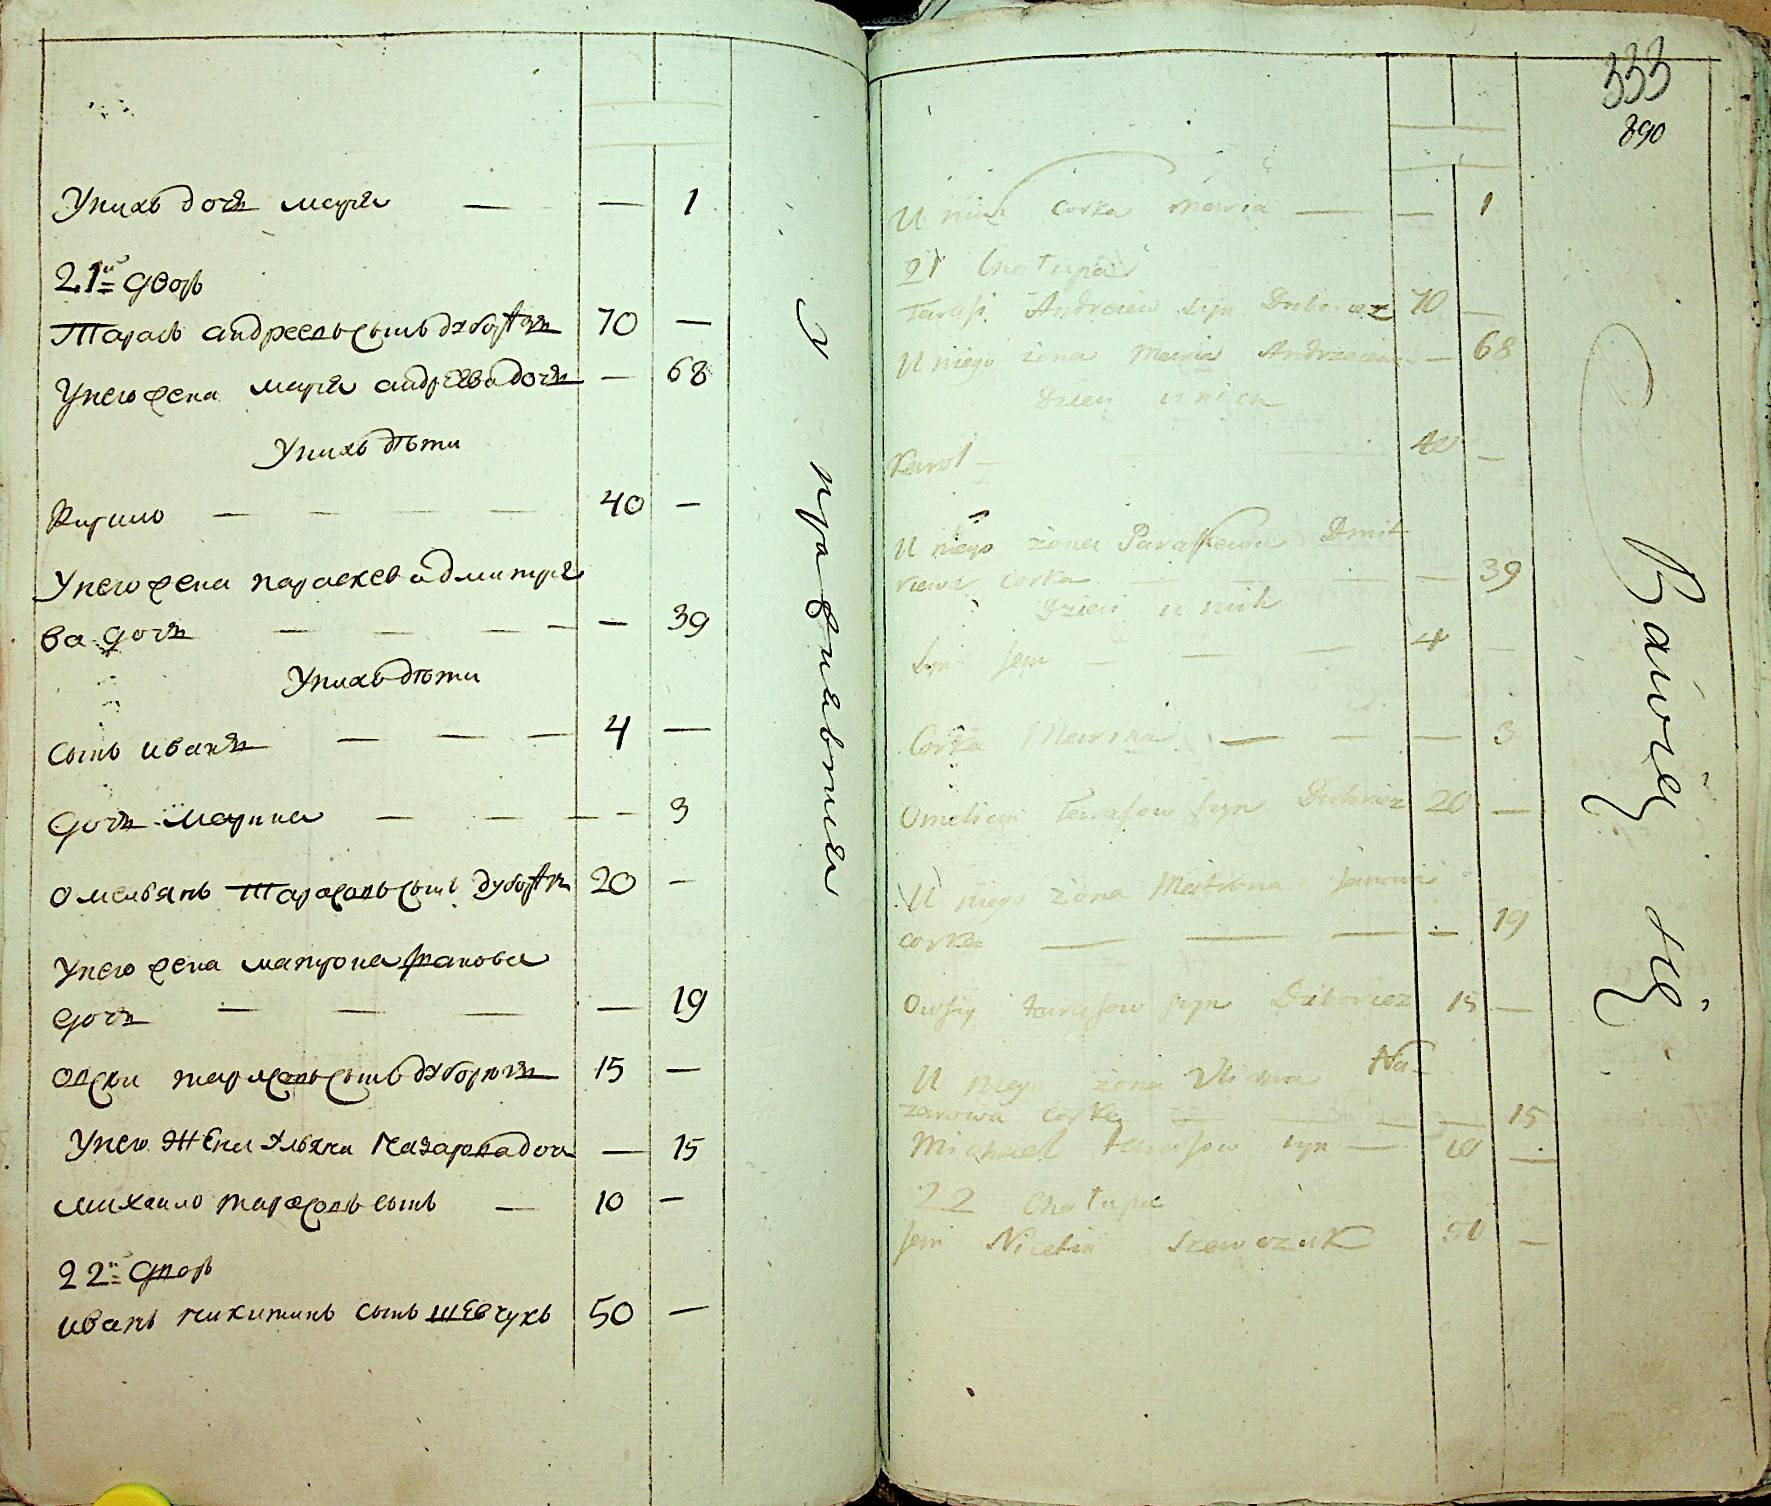 У нихъ дочь марія — — 1
21й дворъ
Тарасъ андреевъ сынъ дуборѣзъ 70 —
У него жена марія андрѣева дочь — 68
У нихъ дѣти
Кирило — — — — 40 —
У него жена параскева дмитріе
ва дочь — — — — — 39
У нихъ дѣти
сынъ иванъ — — — 4 —
дочь марина — — — — 3
омельянъ Тарасовъ сынъ дуборѣзъ 20 —
У него жена матрона
дочь — — — — 19
овсѣи тарасовъ сынъ дуборѣзъ 15 —
У него жена ульяна назарова дочь — 15
михаило тарасовъ сынъ — 10 —
22й дворъ
иванъ никитинъ сынъ шевчукъ 50 —
У правлявшіи
333
890
U nich corka Maria — — 1
21 Chałupa
Taras Andreiew syn Duborez 70 —
U niego żona Maria Andrzeiewa — 68
Dzieci u nich
Karol — 40 —
U niego żona Paraskewia Dmit
riewa corka — 39
Dzieci u nich
Syn Jan — — — 4 —
Corka Maryna — — — 3
Omelian Tarasow syn Duborez 20 —
U niego żona Matrona Janowa
corka — — — — 19
Owsiy Tarasow syn Duborez 15 —
U niego żona Uliana Na-
zarowa corka — — — 15
Michael Tarasow syn — 10 —
22 Chałupa
Jan Nicetin Szewczuk 50 —
Bawięcy się